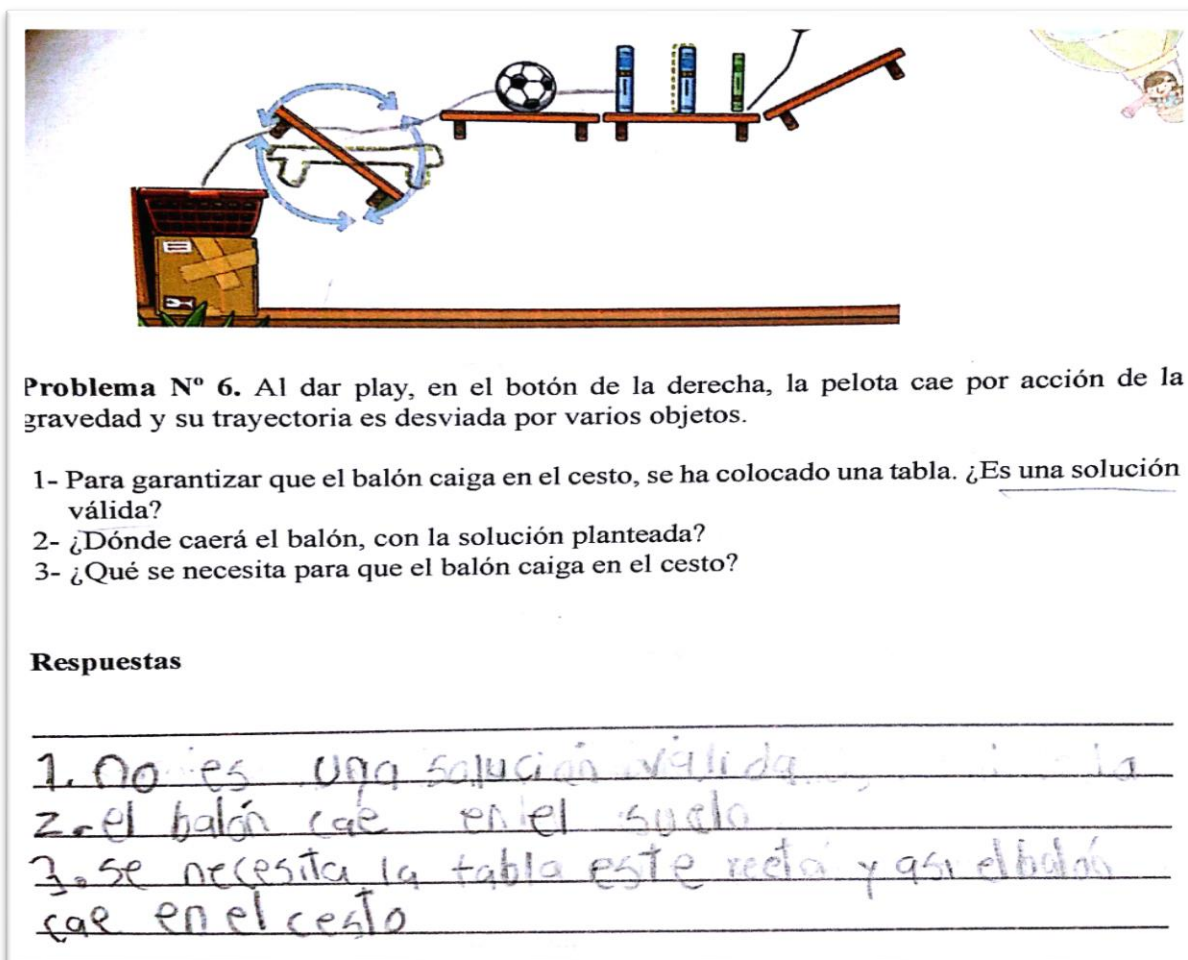 Problema Nº 6. Al dar play, en el botón de la derecha, la pelota cae por acción de la
gravedad y su trayectoria es desviada por varios objetos.
1- Para garantizar que el balón caiga en el cesto, se ha colocado una tabla. ¿Es una solución
válida?
2- ¿Dónde caerá el balón, con la solución planteada?
3- ¿Qué se necesita para que el balón caiga en el cesto?
Respuestas
1. no es una solución válida la
2. el balón cae en el suelo
3. se necesita la tabla este recta y asi el balón
cae en el cesto